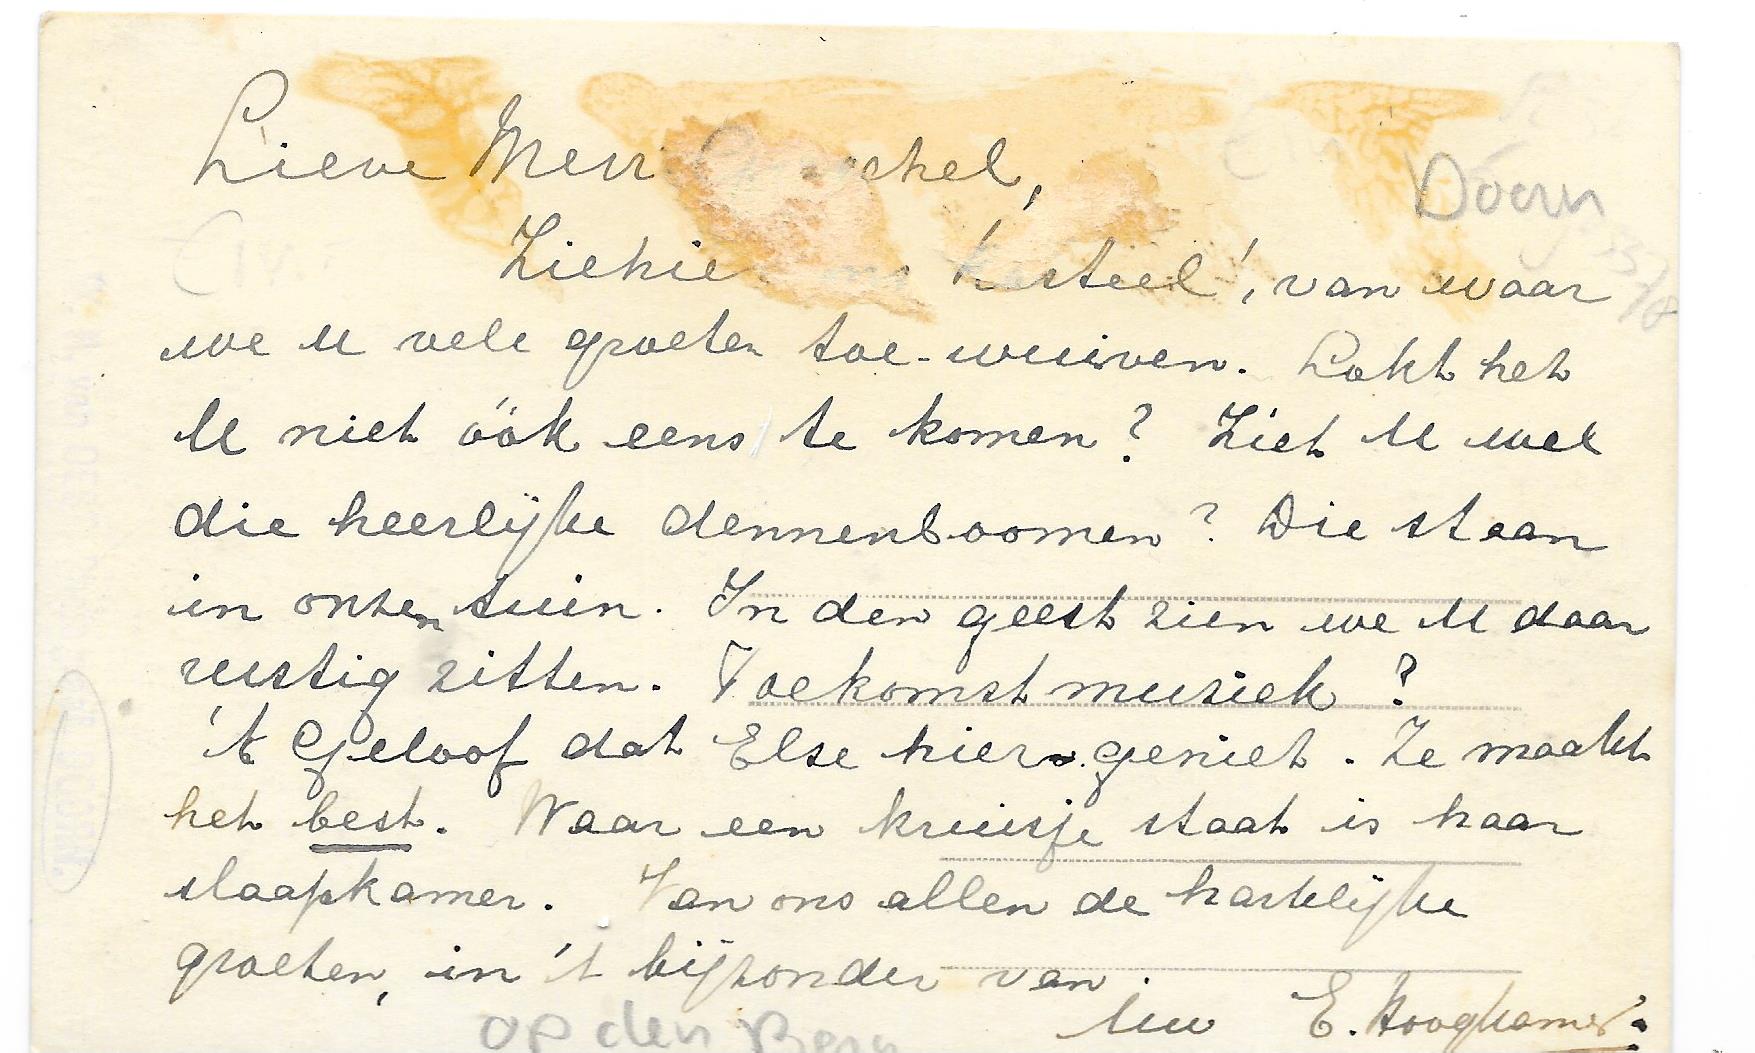 Lieve Mevr chel,
Doorn
Ziehier ons kasteel', van waar
we U vele groeten toe-wuiven. Lokt het
U niet óók eens te komen? Ziet U wel
die heerlijke dennenboomen? Die staan
in onzen tuin. In den geest zien we U daar
rustig zitten. Toekomstmuziek?
'k Geloof dat Else hier geniet. Ze maakt
het best. Waar een kruisje staat is haar
slaapkamer. Van ons allen de hartelijke
groeten, in 't bijzonder van
Uw E. Hoogkamer.
op den Berg